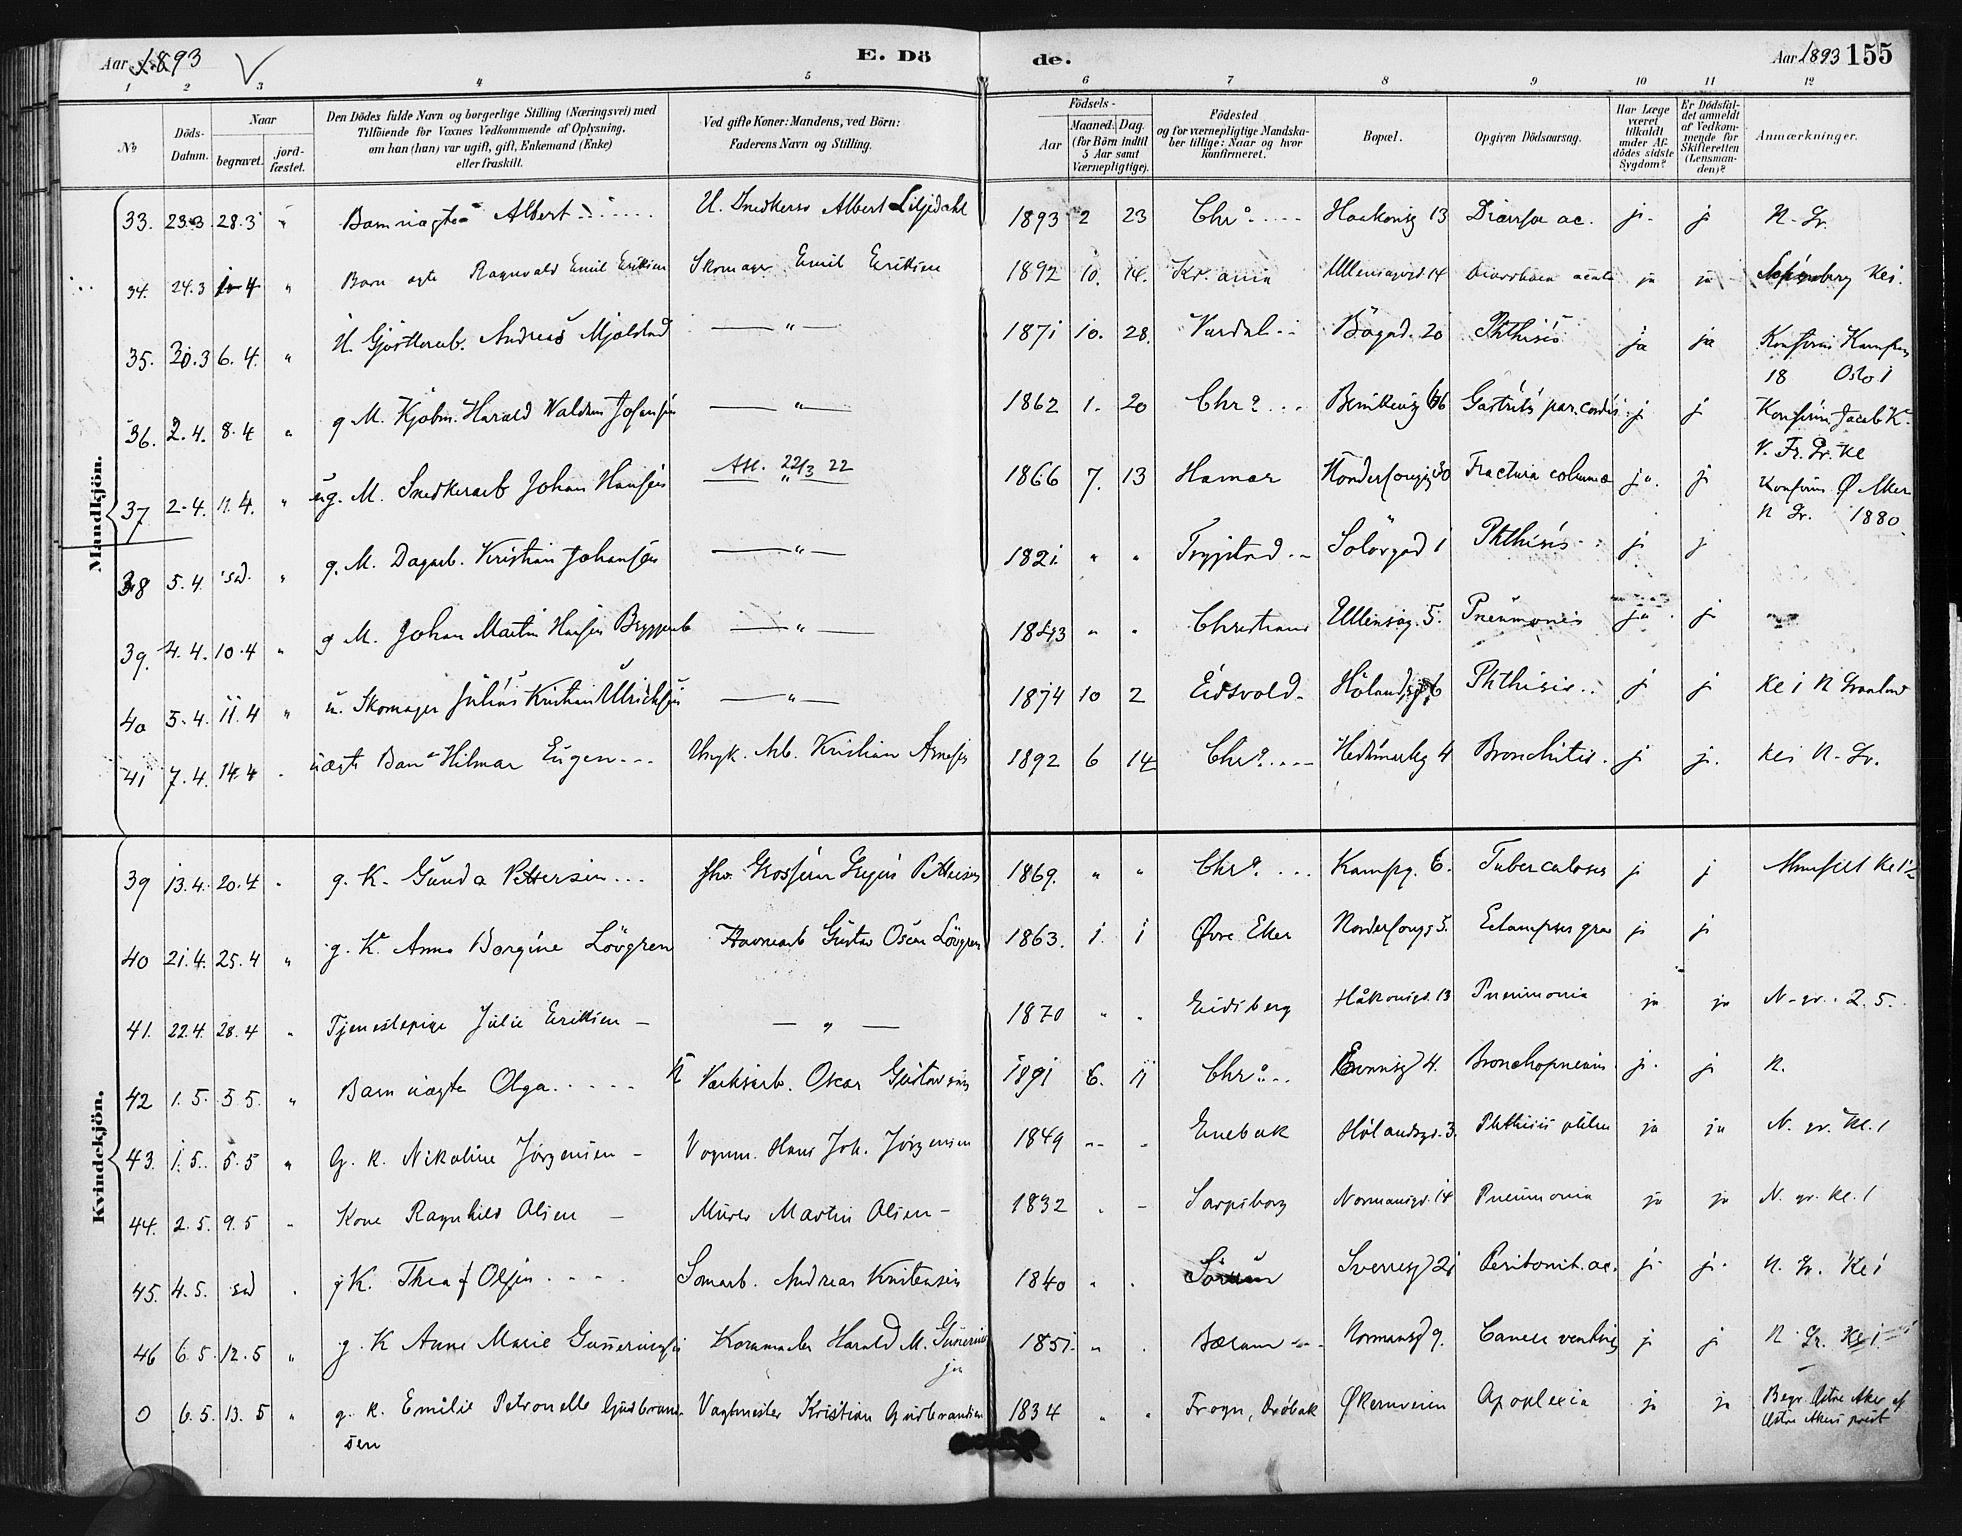 Aar 1893
E. Dö
de.
Aar 1893 155
1 2 3 4 5 6 7 8 9 10 11 12
No
Döds-
Datum.
Naar
begravet.
jord-
fæstet.
Den Dödes fulde Navn og borgerlige Stilling (Næringsvei) med
Tilföiende for Voxnes Vedkommende af Oplysning,
om han (hun) var ugift, gift, Enkemand (Enke)
eller fraskilt.
Ved gifte Koner: Mandens, ved Börn:
Faderens Navn og Stilling.
Födsels-
Aar
Maaned. Dag.
(for Börn indtil
5 Aar samt
Værnepligtige).
Födested
og for værnepligtige Mandska-
ber tillige: Naar og hvor
konfirmeret.
Bopæl.
Opgiven Dödsaarsag.
Har Læge
været
tilkaldt
under Af-
dödes sidste
Sygdom?
Er Dödsfal-
det anmeldt
af Vedkom-
mende for
Skifteretten
(Lensman-
den)?
Anmærkninger.
Mandkjön.
33. 23.3 28.3 " Barn uægte Albert U. Snedkersv Albert Liljedahl 1893 2 23 Chr.a Haakonsg 13 Diarrhoe ac. ja ja N. Gr.
34. 24.3 " Barn ægte Ragnvald Emil Eriksen Skomager Emil Eriksen 1892 10. 14. Kr.ania Ullensagergd. 14 Diarrhoea acuta ja ja Kl. 1.
35. 30.3 6.4. " U. Andreas Mjölstad — " — 1871 10. 28. Vardal Bögad. 20 Phthisis ja ja Konfirm Kampen
18 Oslo 1
36. 2.4. 8.4 " g M. Harald Valdem Johansen — " — 1862 1. 20 Chr.a 46 Gastritis par. cordis j j Konfirm Jacob K.
V. Fr. Gr. Kl
37 2.4. 11.4. " ug. M. Snedkerarb Johan Hansen Att. 22/3 22 1866 7. 13 Hamar 30 Fractura columna ja. j Konfirm Ø Aker
N Gr. 1880.
38 5.4. sd. " g. M. Dagarb. Kristian Johansen — " — 1821 " " Trygstad Solörgad 1 Phthisis j j
39. 4.4. 10.4 " g M. Johan Martin Hansen Bryggearb — " — 1843 " " Christiania Ullensag. 5. Pneumonia ja j
40 5.4. 11.4 " u. Skomager Julius Kristian Ulrichsen — " — 1874 10 2 Eidsvold Hölandsg 6 Phthisis j j Kl 1 N Grønland
41 7.4. 14.4 " uægte Barn Hilmar Eugen Ungk. Arb. Kristian Arnesen 1892 6 14 Chr.a Hedemarksg 4 Bronchitis. j j. Kl 1 N. Gr.
Kvindekjön.
39 13.4. 20.4 " g. K. Gunda Pettersen Pettersen 1869. " " Chr.a Kampg. 6. Tuberculosis j j
40 21.4. 25.4 " g. K. Anna Bargine Lövgren Havnearb Gustav Oscar Lövgren 1863. 1 1 Øvre Eker 5. Eclampsia grav j j
41. 22.4. 28.4 " Tjenestepige Julie Eriksen — — " — 1870 " " Eidsberg Håkonsgd. 13 Pneumonia ja ja N. gr. 2. 5.
42 1.5. 5.5. " Barn uægte Olga U Værksarb. Oscar Gustavsen 1891 6. 11 Chr.a 4. Bronchopneum. j. j N.
43. 1.5. 5.5 " G. K. Nikoline Jörgensen — Vognm. Hans Joh. Jörgensen 1849 " " Enebak Hölandsgd. 3. Phthisis pulm ja ja N. gr. Kl. 1
44. 2.5. 9.5 " Kone Ragnhild Olsen — Murer Martin Olsen — 1832 " " Sarpsborg Normansgd. 14 Pneumonia ja ja N. gr. Kl. 1
45. 4.5. sd " g K. Thea f Olsen Andreas Kristensen 1840 " " Sörum Sverresg 21 Peritonit. ac. j. j. N. Gr. Kl 1
46 6.5. 12.5 " g. K Anne Marie Gunneriusen Harald M. Gunneriu
sen 1851. " " Bærum Normansg 9. Cancer ventric j j N. Gr. Kl 1
0 6.5. 13.5 " g. k. Emilie Petronelle Gudbrand-
sen Vagtmester Kristian Gudbrandsen 1834 " " Frogn, Dröbak Økernveien Apoplexia ja ja Begr. Østre Aker af
Østre Akers prest